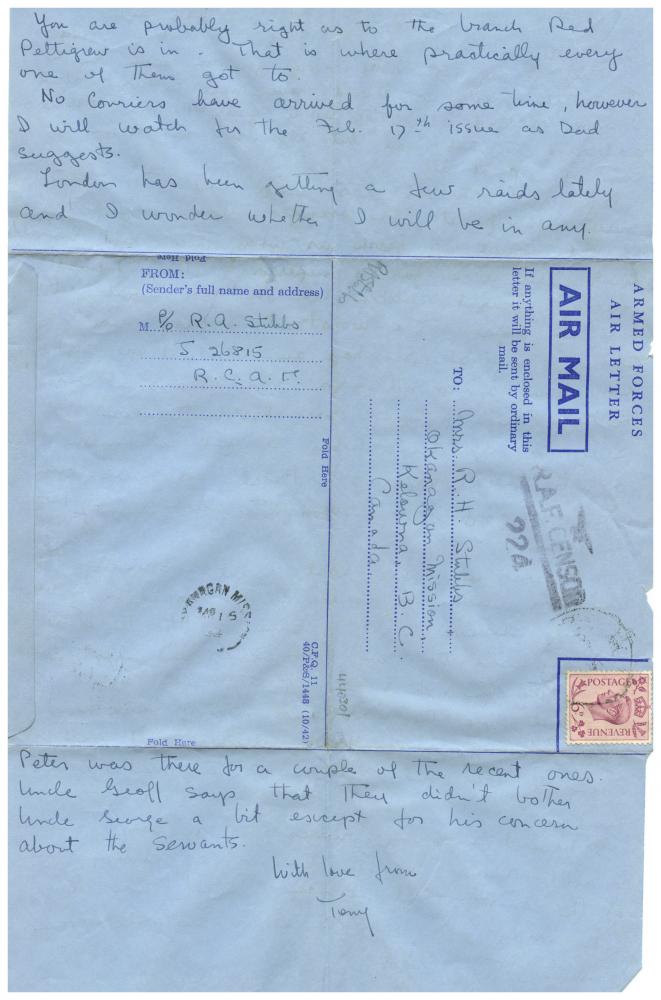 You are probably right as to the branch Red
Pettigrew is in. That is where practically every
one of them got to.
No Couriers have arrived for some time, however
I will watch for the Feb. 17th issue as Dad
suggests.
London has been getting a few raids lately
and I wonder whether I will be in any.
Fold Here
FROM:
(Sender's full name and address)
M. P/O R.A. Stubbs
J 26815
R.C.A.F.
Fold Here
ARMED FORCES
AIR LETTER
AIR MAIL
If anything is enclosed in this
letter it will be sent by ordinary
mail.
TO: Mrs R. H. Stubbs
Okanagan Mission
Kelowna B.C.
Canada
R.A.F. CENSOR
224
OKANAGAN MISSION
15
POSTAGE
REVENUE
6D
C.F.Q. 11
40/P&S/1448 (10/42)
Fold Here
Peter was there for a couple of the recent ones.
Uncle Geoff says that they didn't bother
Uncle George a bit except for his concern
about the servants.
With love from
Tony